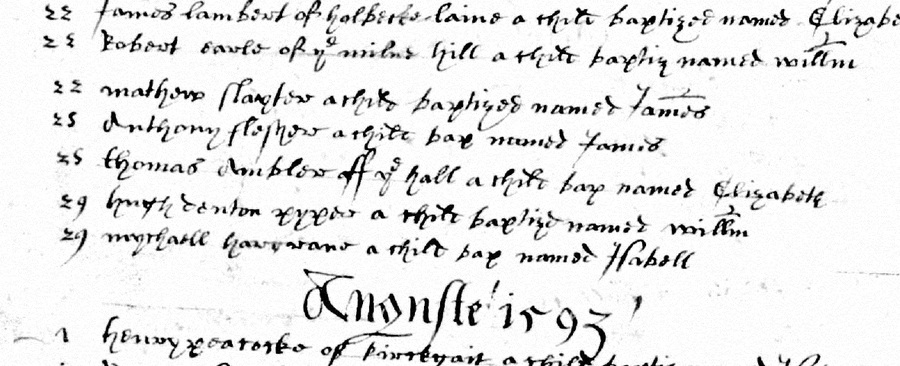 22 James lambert of holbecke laine a child baptized named Elizabe
22 Robert earle of yᵉ milne hill a child baptiz named willm
22 mathew slayter a child baptized named James
25 Anthony flesher a child bap named James
25 thomas Ambler ff yᵉ hall a child bap named Elizabeth
29 hugh denton pyper a child baptized named willm
29 mychaell a child bap named Isabell
Auguste 1593
1 henry peacocke of kirkgait a child